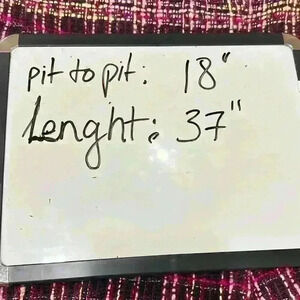 pit to pit: 18"
Lenght: 37"